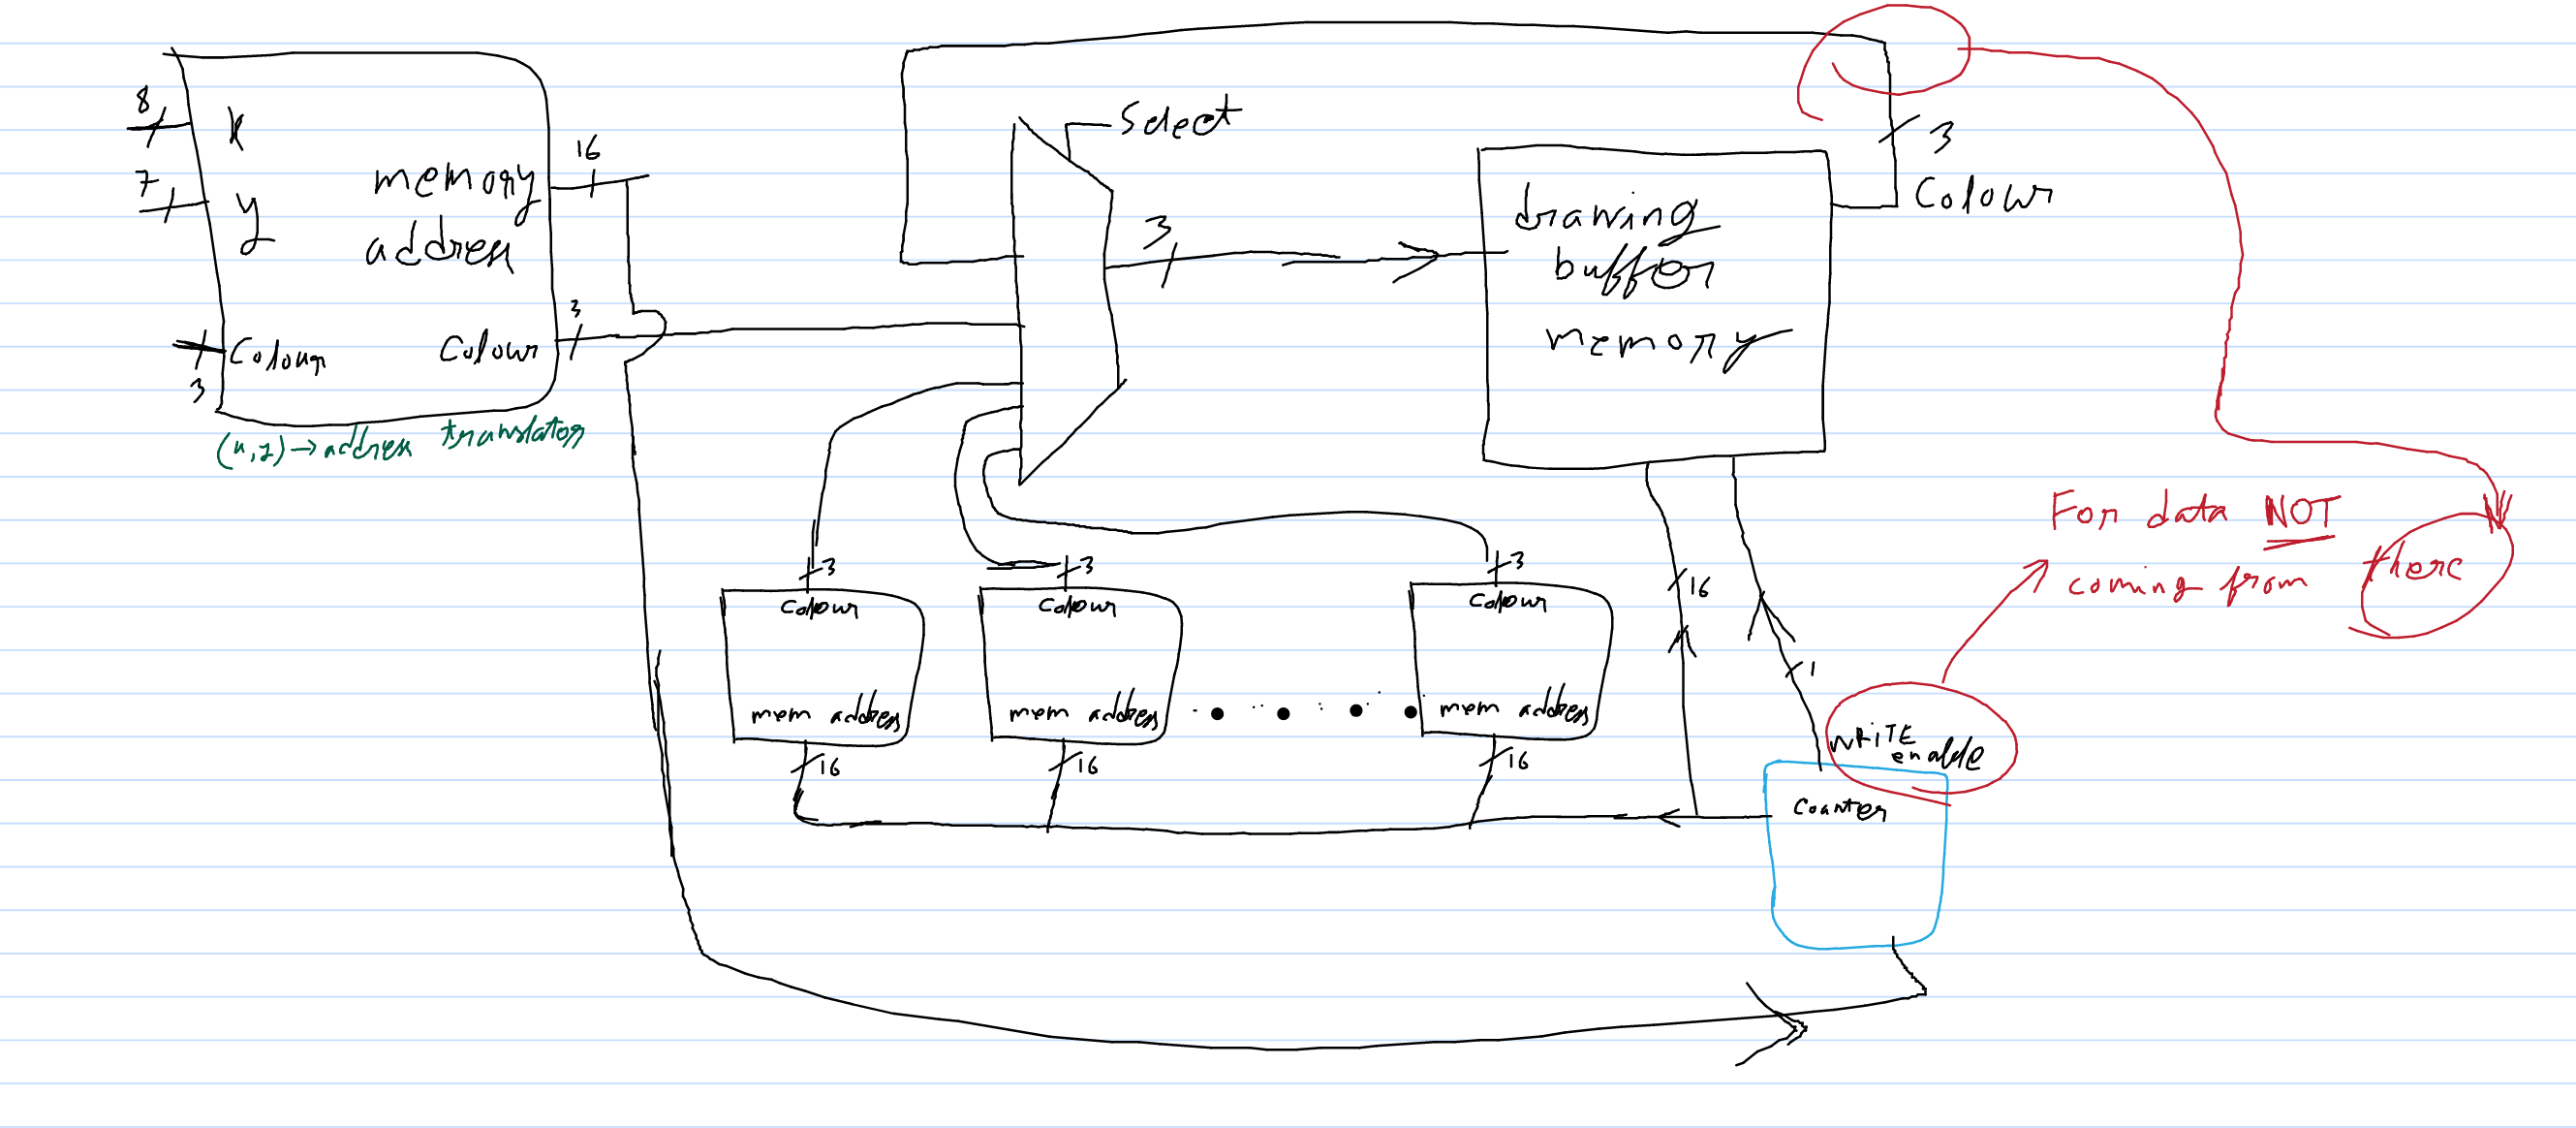 8
x
7
y
memory
address
16
3
Colour
Colour
3
(x,y) → address translator
Select
3
drawing
buffer
memory
3
Colour
3
Colour
mem address
16
3
Colour
mem address
16
3
Colour
mem address
16
16
1
WRITE
enable
Counter
For data NOT
coming from there